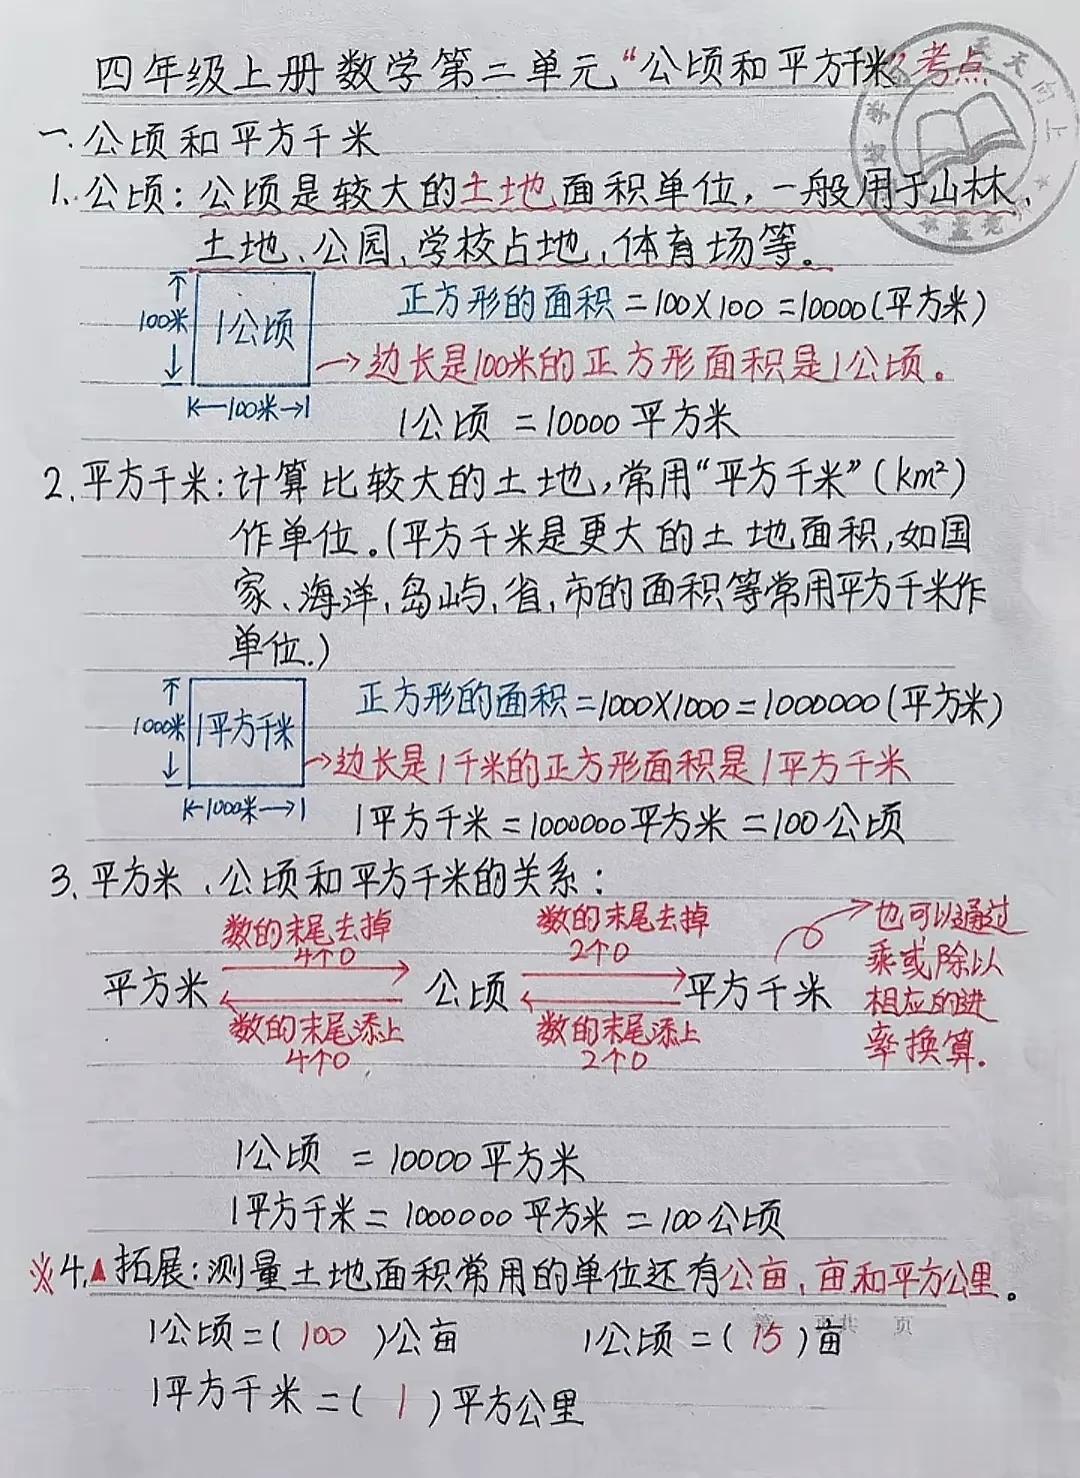 四年级上册数学第二单元“公顷和平方千米”考点
一.公顷和平方千米
1、公顷：公顷是较大的土地面积单位，一般用于山林、
土地、公园、学校占地、体育场等。
100米
1公顷
K—100米→1
正方形的面积=100X100=10000(平方米)
→边长是100米的正方形面积是1公顷。
1公顷=10000平方米
2、平方千米：计算比较大的土地，常用“平方千米”(km²)
作单位。(平方千米是更大的土地面积，如国
家、海洋、岛屿、省、市的面积等常用平方千米作
单位.)
1000米
1平方千米
K—1000米→1
正方形的面积=1000X1000=1000000(平方米)
→边长是1千米的正方形面积是1平方千米
1平方千米=1000000平方米=100公顷
3、平方米、公顷和平方千米的关系：
数的末尾去掉
4个0
数的末尾去掉
2个0
平方米
公顷
平方千米
数的末尾添上
4个0
数的末尾添上
2个0
也可以通过
乘或除以
相应的进
率换算.
1公顷=10000平方米
1平方千米=1000000平方米=100公顷
※4、▲拓展：测量土地面积常用的单位还有公亩、亩和平方公里。
1公顷=(100)公亩 1公顷=(15)亩
1平方千米=(1)平方公里
天天向上